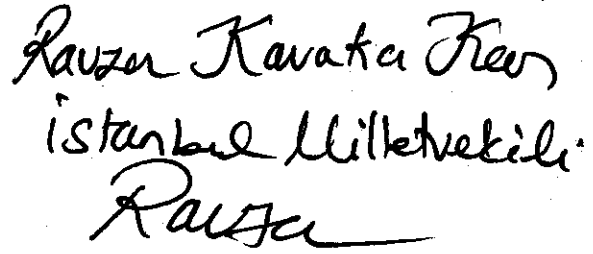 Ravza Kavakcı Kan
İstanbul Milletvekili
Ravza